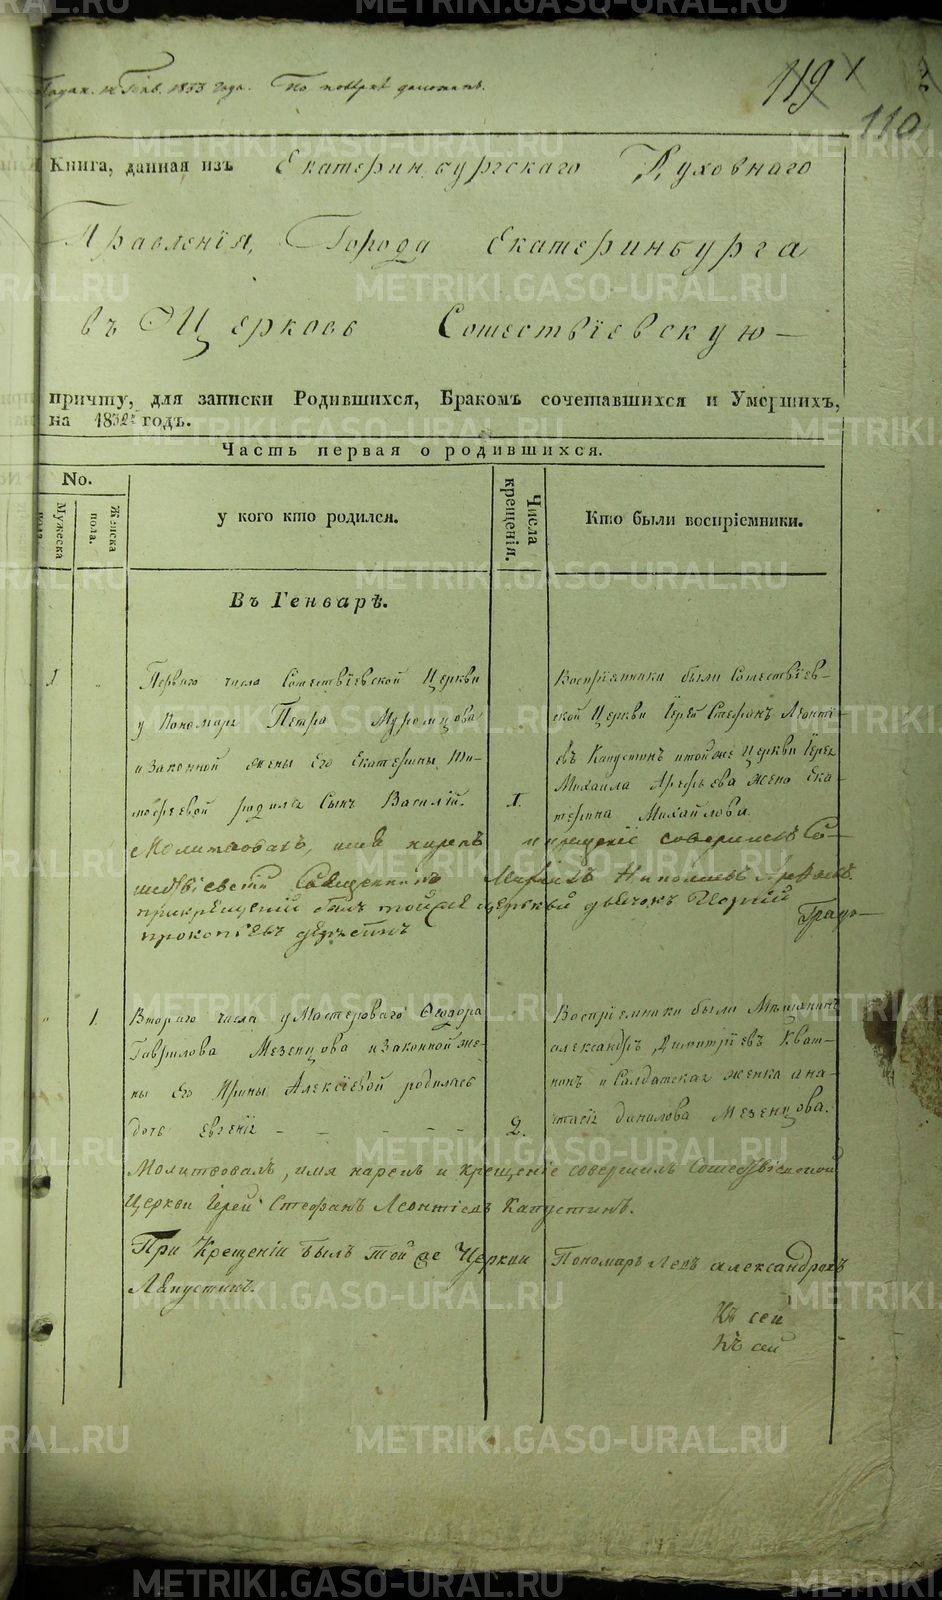 Подан. 14 Генв. 1833 года. По повѣркѣ доложить.
119
110
Книга, данная изъ Екатеринбургскаго Духовнаго
Правленія, Города Екатеринбурга
въ Церковь Сошествіевскую
причту, для записки Родившихся, Бракомъ сочетавшихся и Умершихъ,
на 1832й годъ.
Часть первая о родившихся.
No.
Мужеска пола.
Женска пола.
у кого кто родился.
Числа крещенія.
Кто были воспріемники.
Въ Генварѣ.
1
Перваго числа Сошествіевской Церкви
у Пономаря Петра Муромцова
и законной жены его Екатерины Ти-
мофеевой родился Сынъ Василій.
1.
Воспріемники были Сошествіев-
ской Церкви Іерей Стефанъ Леонті-
евъ Капустинъ и той же Церкви Іерея
Михаила Арефьева жена Ека-
терина Михайлова.
Молитвовалъ, имя нарекъ и крещеніе совершилъ Со-
шествіевскій Священникъ
при крещеніи былъ той же церкви дьячокъ Георгій
Прокопьевъ
1.
Втораго числа у Мастероваго Феодора
Гаврилова Мезенцова и законной же-
ны его Ирины Алексіевой родилась
дочь Евгенія - - - - -
2.
Воспріемники были Мѣщанинъ
Александръ Димитріевъ Кваш-
нинъ и Салдатская женка Ана-
тасія Данилова Мезенцова.
Молитвовалъ, имя нарекъ и крещеніе совершилъ Сошествіевской
Церкви Іерей Стефанъ Леонтіевъ Капустинъ.
При Крещеніи былъ той же Церкви Пономарь Левъ Александровъ
Къ сей
Къ сей
METRIKI.GASO-URAL.RU